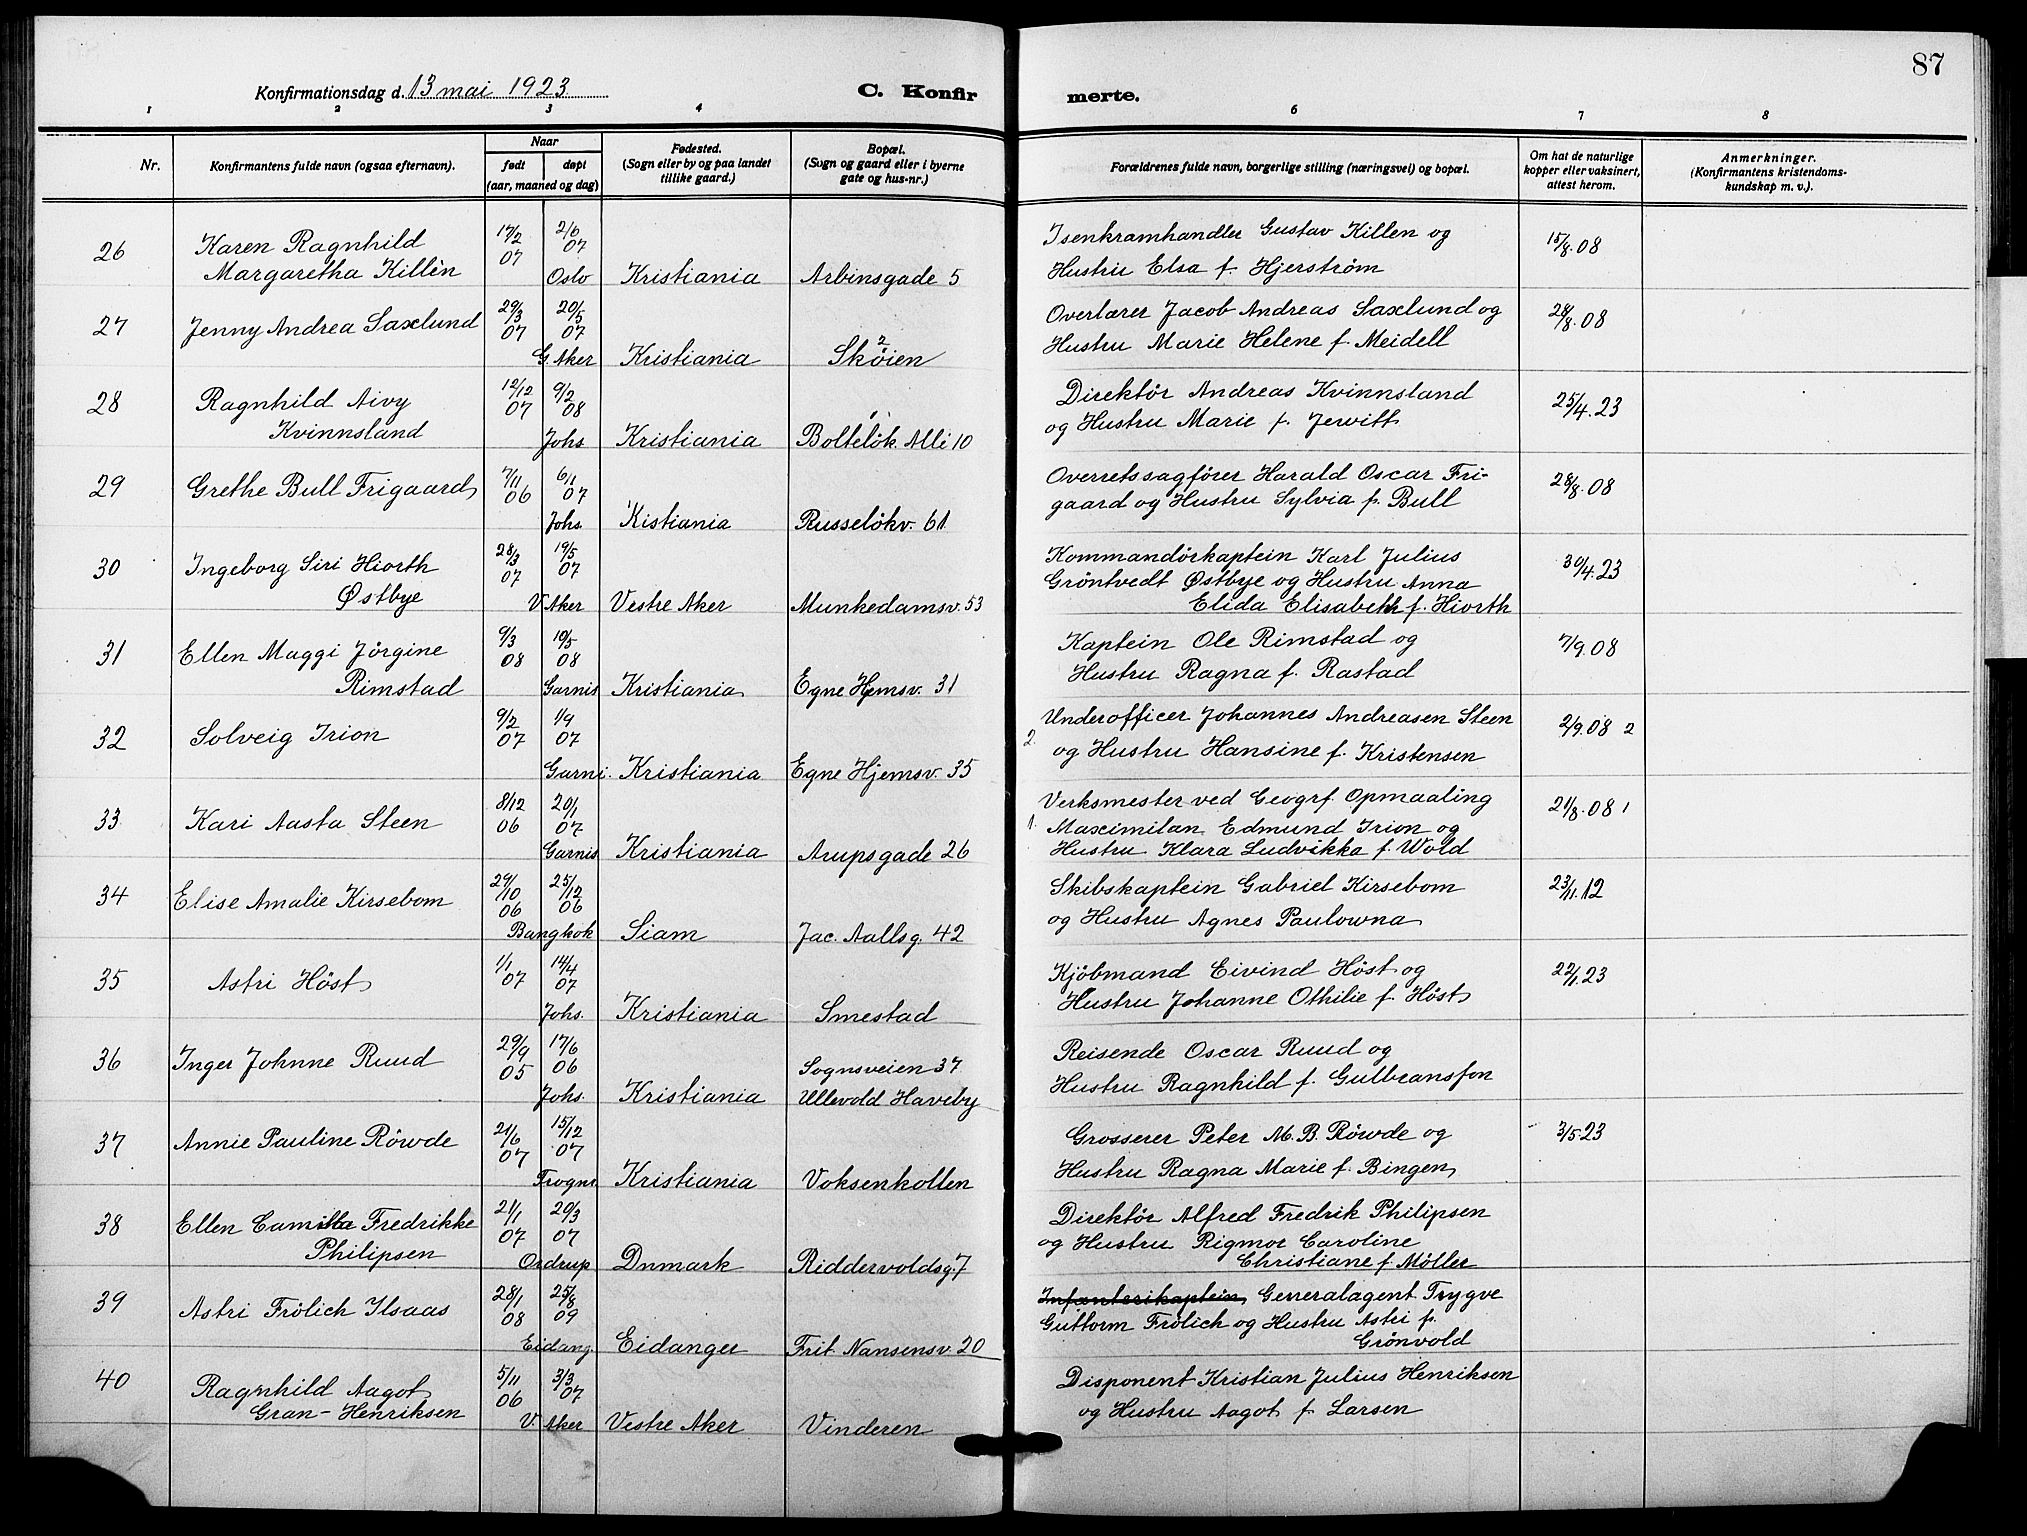 87
Konfirmationsdag d. 13 mai 1923
C. Konfir
merte.
1 2 3 4 6 7 8
Nr.
Konfirmantens fulde navn (ogsaa efternavn).
Naar
født
døpt
(aar, maaned og dag)
Fødested.
(Sogn eller by og paa landet
tillike gaard.)
Bopæl.
(Sogn og gaard eller i byerne
gate og hus-nr.)
Forældrenes fulde navn, borgerlige stilling (næringsvei) og bopæl.
Om hat de naturlige
kopper eller vaksinert,
attest herom.
Anmerkninger.
(Konfirmantens kristendoms-
kundskap m. v.).
26 Karen Ragnhild
Margaretha Killén
17/2 07
2/6 07
Oslo
Kristiania
Arbinsgade 5
Isenkramhandler Gustav Killen og
Hustru Elsa f. Hjerstrøm
15/8.08
27 Jenny Andrea Saxlund
29/3 07
20/5 07
G. Aker
Kristiania
Skøien
Overlærer Jacob Andreas Saxlund og
Hustru Marie Helene f. Meidell
28/8.08
28 Ragnhild Aivy
Kvinnsland
12/12 07
9/2 08
Johs
Kristiania
Bolteløk Alli 10
Direktør Andreas Kvinnsland
og Hustru Marie f. Jewitt
25/4.23
29 Grethe Bull Frigaard
7/11 06
6/1 07
Johs.
Kistiania
Russeløkv. 61
Overretssagfører Harald Oscar Fri-
gaard og Hustru Sylvia f. Bull
28/8.08
30 Ingeborg Siri Hiorth
Østbye
28/3 07
19/5 07
V. Aker
Vestre Aker
Munkedamsv. 53
Kommandørkaptein Karl Julius
Grøntvedt Østbye og Hustru Anna
Elida Elisabeth f. Hiorth
30/4.23
31 Ellen Maggi Jørgine
Rimstad
9/3 08
10/5 08
Garnis
Kristiania
Egne Hjemsv. 31
Kaptein Ole Rimstad og
Hustru Ragna f. Rastad
7/9.08
32 Solveig Irion
9/2 07
1/9 07
Garni.
Kristiania
Egne Hjemsv. 35
2 Underofficer Johannes Andreasen Steen
og Hustru Hansine f. Kristensen
2/9.08 2
33 Kari Aasta Steen
8/12 06
20/1 07
Garnis
Kristiania
Arupsgade 26
1. Verksmester ved Geogrf. Opmaaling
Maximilan Edmund Irion og
Hustru Klara Ludvikka f. Wold
21/8.08 1
34 Elise Amalie Kirsebom
29/10 06
25/12 06
Bangkok
Siam
Jac. Aallsg. 42
Skibskaptein Gabriel Kirsebom
og Hustru Agnes Paulowna
23/11.12
35 Astri Høst
1/1 07
14/4 07
Johs.
Kristiania
Smestad
Kjøbmand Eivind Høst og
Hustru Johanne Othilie f. Høst
22/1.23
36 Inger Johnne Ruud
29/9 05
17/6 06
Johs.
Kristiania
Sognsveien 37
Ullevold Haveby
Reisende Oscar Ruud og
Hustru Ragnhild f. Gulbransson
37 Annie Pauline Røwde
21/6 07
15/12 07
Frogn.
Kristiania
Voksenkollen
Grosserer Peter M. B. Røwde og
Hustru Ragna Marie f. Bingen
3/5.23
38 Ellen Camilla Fredrikke
Philipsen
21/1 07
29/3 07
Ordrup
Dnmark
Riddervoldsg. 7
Direktør Alfred Fredrik Philipsen
og Hustru Rigmor Caroline
Christiane f. Møller
39 Astri Frölich Ilsaas
28/1 08
25/8 09
Eidang.
Eidanger
Frit. Nansensv. 20
Infanterikaptein Generalagent Trygve
Guttorm Frölich og Hustru Astri f.
Grønvold
40 Ragnhild Aagot
Gran-Henriksen
5/11 06
3/3 07
V. Aker
Vestre Aker
Vinderen
Disponent Kristian Julius Henriksen
og Hustru Aagot f. Larsen